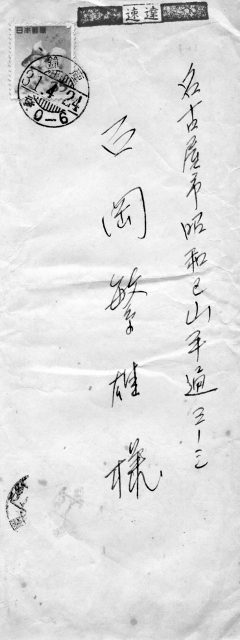 速達
日本郵便
31.4.24
0-6
名古屋市昭和区山手通三ー三
石岡繁雄様